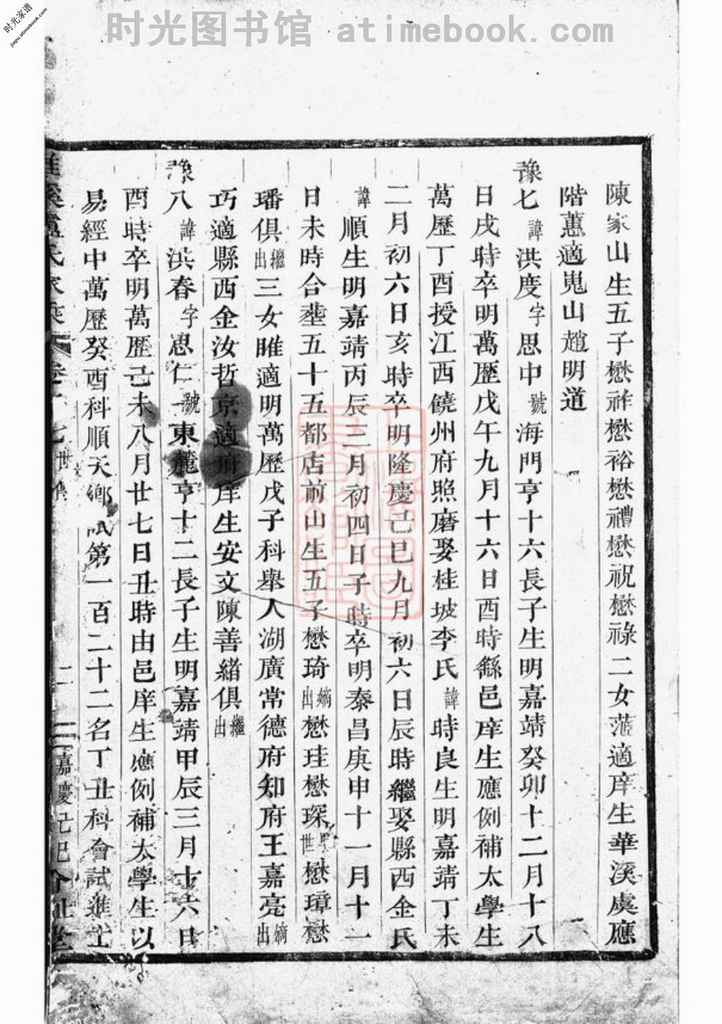 时光图书馆 atimebook.com
时光家谱
陳家山生五子懋祚懋裕懋禮懋祝懋祿二女蕰適庠生華溪虞應
階蕙適嵬山趙明道
豫七諱洪度字思中號海門亨十六長子生明嘉靖癸卯十二月十八
日戌時卒明萬歷戊午九月十六日酉時繇邑庠生應例補太學生
萬歷丁酉授江西饒州府照磨娶桂坡李氏諱時良生明嘉靖丁未
二月初六日亥時卒明隆慶己巳九月初六日辰時繼娶縣西金氏
諱順生明嘉靖丙辰三月初四日子時卒明泰昌庚申十一月十一
日未時合塟五十五都店前山生五子懋琦嫡出懋珪懋琛世懋璋懋
璠俱繼出三女睢適明萬歷戊子科舉人湖廣常德府知府王嘉亮嫡出
巧適縣西金汝哲京適府庠生安文陳善緒俱繼出
豫八諱洪春字思仁號東麓亨十二長子生明嘉靖甲辰三月十六日
酉時卒明萬歷己未八月廿七日丑時由邑庠生應例補太學生以
易經中萬歷癸酉科順天鄉試第一百二十二名丁丑科會試進士
氏家乘 卷 七 世 嘉慶己巳